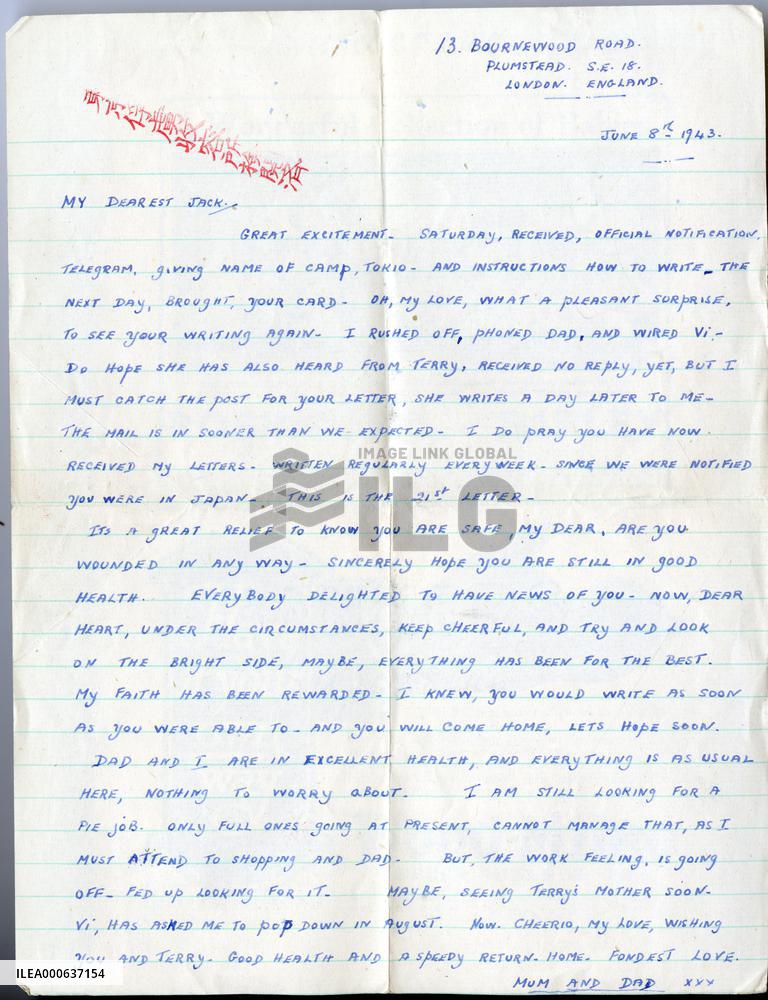 13. BOURNEWOOD ROAD.
PLUMSTEAD. S.E. 18.
LONDON. ENGLAND.
JUNE 8TH 1943.
MY DEAREST JACK.
GREAT EXCITEMENT- SATURDAY, RECEIVED, OFFICIAL NOTIFICATION,
TELEGRAM, GIVING NAME OF CAMP, TOKIO- AND INSTRUCTIONS HOW TO WRITE- THE
NEXT DAY, BROUGHT, YOUR CARD- OH, MY LOVE, WHAT A PLEASANT SURPRISE,
TO SEE YOUR WRITING AGAIN- I RUSHED OFF, PHONED DAD, AND WIRED VI-
DO HOPE SHE HAS ALSO HEARD FROM TERRY, RECEIVED NO REPLY, YET, BUT I
MUST CATCH THE POST FOR YOUR LETTER, SHE WRITES A DAY LATER TO ME-
THE MAIL IS IN SOONER THAN WE EXPECTED- I DO PRAY YOU HAVE NOW
RECEIVED MY LETTERS- WRITTEN REGULARLY EVERY WEEK- SINCE WE WERE NOTIFIED
YOU WERE IN JAPAN- THIS IS THE 21ST LETTER-
ITS A GREAT RELIEF TO KNOW YOU ARE SAFE, MY DEAR, ARE YOU
WOUNDED IN ANY WAY- SINCERELY HOPE YOU ARE STILL IN GOOD
HEALTH. EVERYBODY DELIGHTED TO HAVE NEWS OF YOU- NOW, DEAR
HEART, UNDER THE CIRCUMSTANCES, KEEP CHEERFUL, AND TRY AND LOOK
ON THE BRIGHT SIDE, MAYBE, EVERYTHING HAS BEEN FOR THE BEST.
MY FAITH HAS BEEN REWARDED- I KNEW, YOU WOULD WRITE AS SOON
AS YOU WERE ABLE TO- AND YOU WILL COME HOME, LETS HOPE SOON.
DAD AND I ARE IN EXCELLENT HEALTH, AND EVERYTHING IS AS USUAL
HERE, NOTHING TO WORRY ABOUT. I AM STILL LOOKING FOR A
PIE JOB. ONLY FULL ONES GOING AT PRESENT, CANNOT MANAGE THAT, AS I
MUST ATTEND TO SHOPPING AND DAD- BUT, THE WORK FEELING, IS GOING
OFF- FED UP LOOKING FOR IT- MAYBE, SEEING TERRY'S MOTHER SOON-
VI, HAS ASKED ME TO POP DOWN IN AUGUST. NOW. CHEERIO, MY LOVE, WISHING
YOU AND TERRY- GOOD HEALTH AND A SPEEDY RETURN- HOME- FONDEST LOVE.
MUM AND DAD XXX
IMAGE LINK GLOBAL
ILG
ILEA000637154